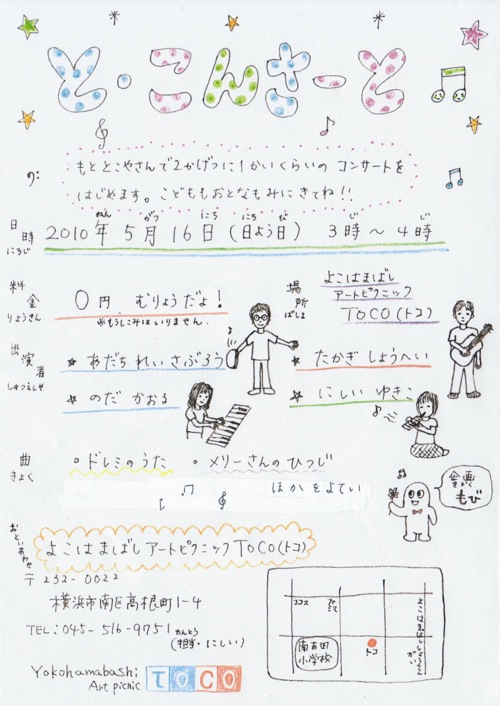 と・こんさーと
もととこやさんで2かげつに1かいくらいの コンサートを
はじめます。こどももおとなもみにきてね!!
日時 にちじ
2010年 5月 16日 (日よう日) 3時〜4時
ねん がつ にち にち び じ じ
料金 りょうきん
0円 むりょうだよ!
※もうしこみはいりません.
場所 ばしょ
よこはまばし
アートピクニック
TOCO(トコ)
出演者 しゅつえんしゃ
☆ あだち れいさぶろう
☆ たかぎ しょうへい
☆ のだ かおる
☆ にしい ゆきこ
曲 きょく
・ドレミのうた ・メリーさんのひつじ
ほかをよてい
企画 きかく
もび
おといあわせ
よこはまばしアートピクニックTOCO(トコ)
〒232-0022
横浜市南区高根町1-4
TEL:045-516-9751 たんとう
(担当・にしい)
Yokohamabashi
Art picnic TOCO
ココス
ファミマ
南吉田
小学校
トコ